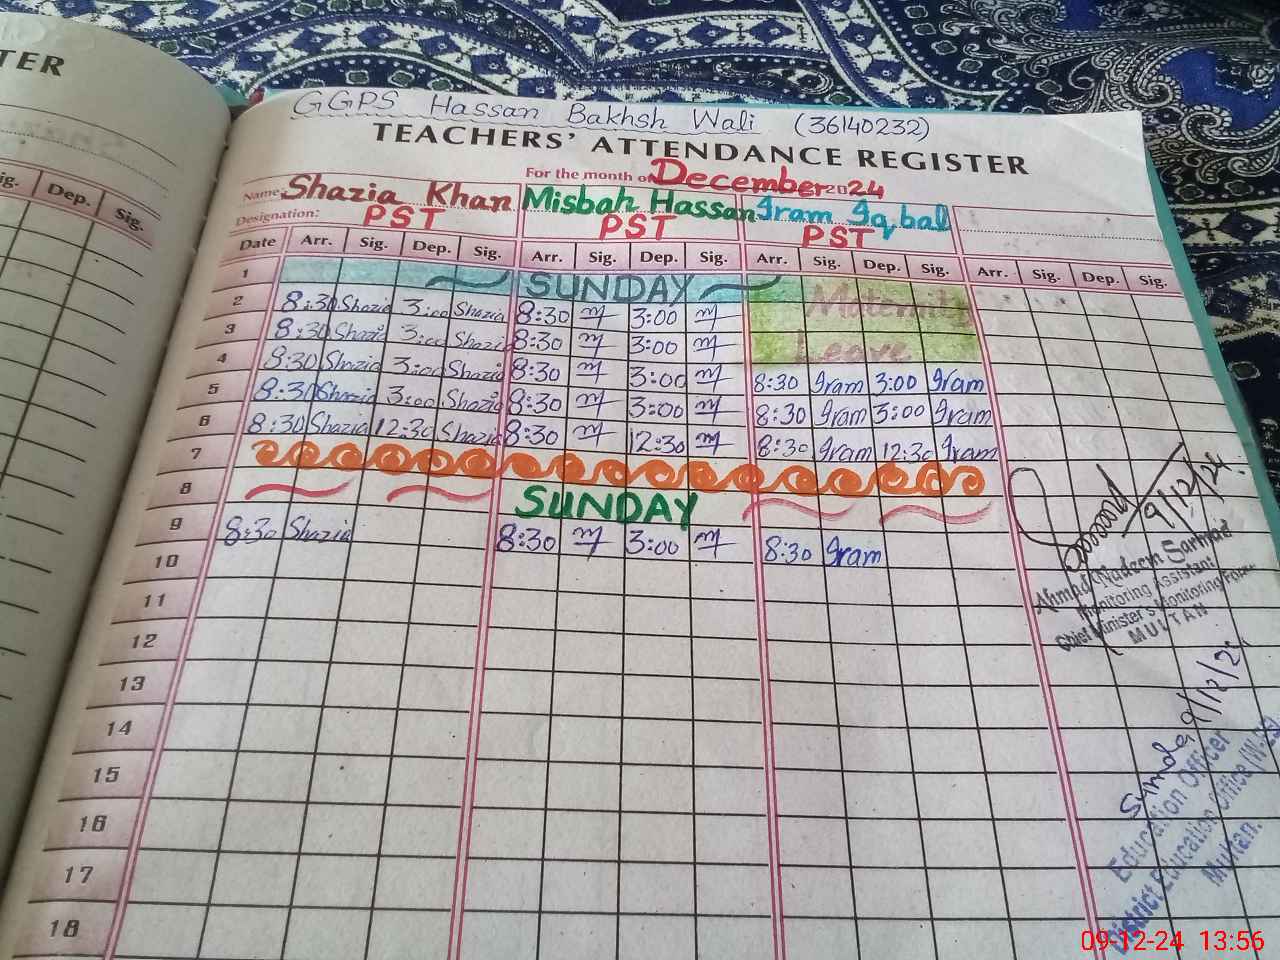 TER
ig. Dep. Sig.
GGPS Hassan Bakhsh Wali (36140232)
TEACHERS' ATTENDANCE REGISTER
For the month of December 2024
Name: Shazia Khan Misbah Hassan Iram Iqbal
Designation: PST PST PST
Date Arr. Sig. Dep. Sig. Arr. Sig. Dep. Sig. Arr. Sig. Dep. Sig. Arr. Sig. Dep. Sig.
1 SUNDAY
2 8:30 Shazia 3:00 Shazia 8:30 m 3:00 m Maternity
3 8:30 Shazia 3:00 Shazia 8:30 m 3:00 m Leave
4 8:30 Shazia 3:00 Shazia 8:30 m 3:00 m 8:30 Iram 3:00 Iram
5 8:30 Shazia 3:00 Shazia 8:30 m 3:00 m 8:30 Iram 3:00 Iram
6 8:30 Shazia 12:30 Shazia 8:30 m 12:30 m 8:30 Iram 12:30 Iram
7
8 SUNDAY
9 8:30 Shazia 8:30 m 3:00 m 8:30 Iram
10
11
12
13
14
15
16
17
18
9/12/24
Ahmad Nadeem Sarmad
Monitoring Assistant
Chief Minister's Monitoring Force
MULTAN
9/12/2
Education Officer
District Education Office
Multan.
09-12-24 13:56